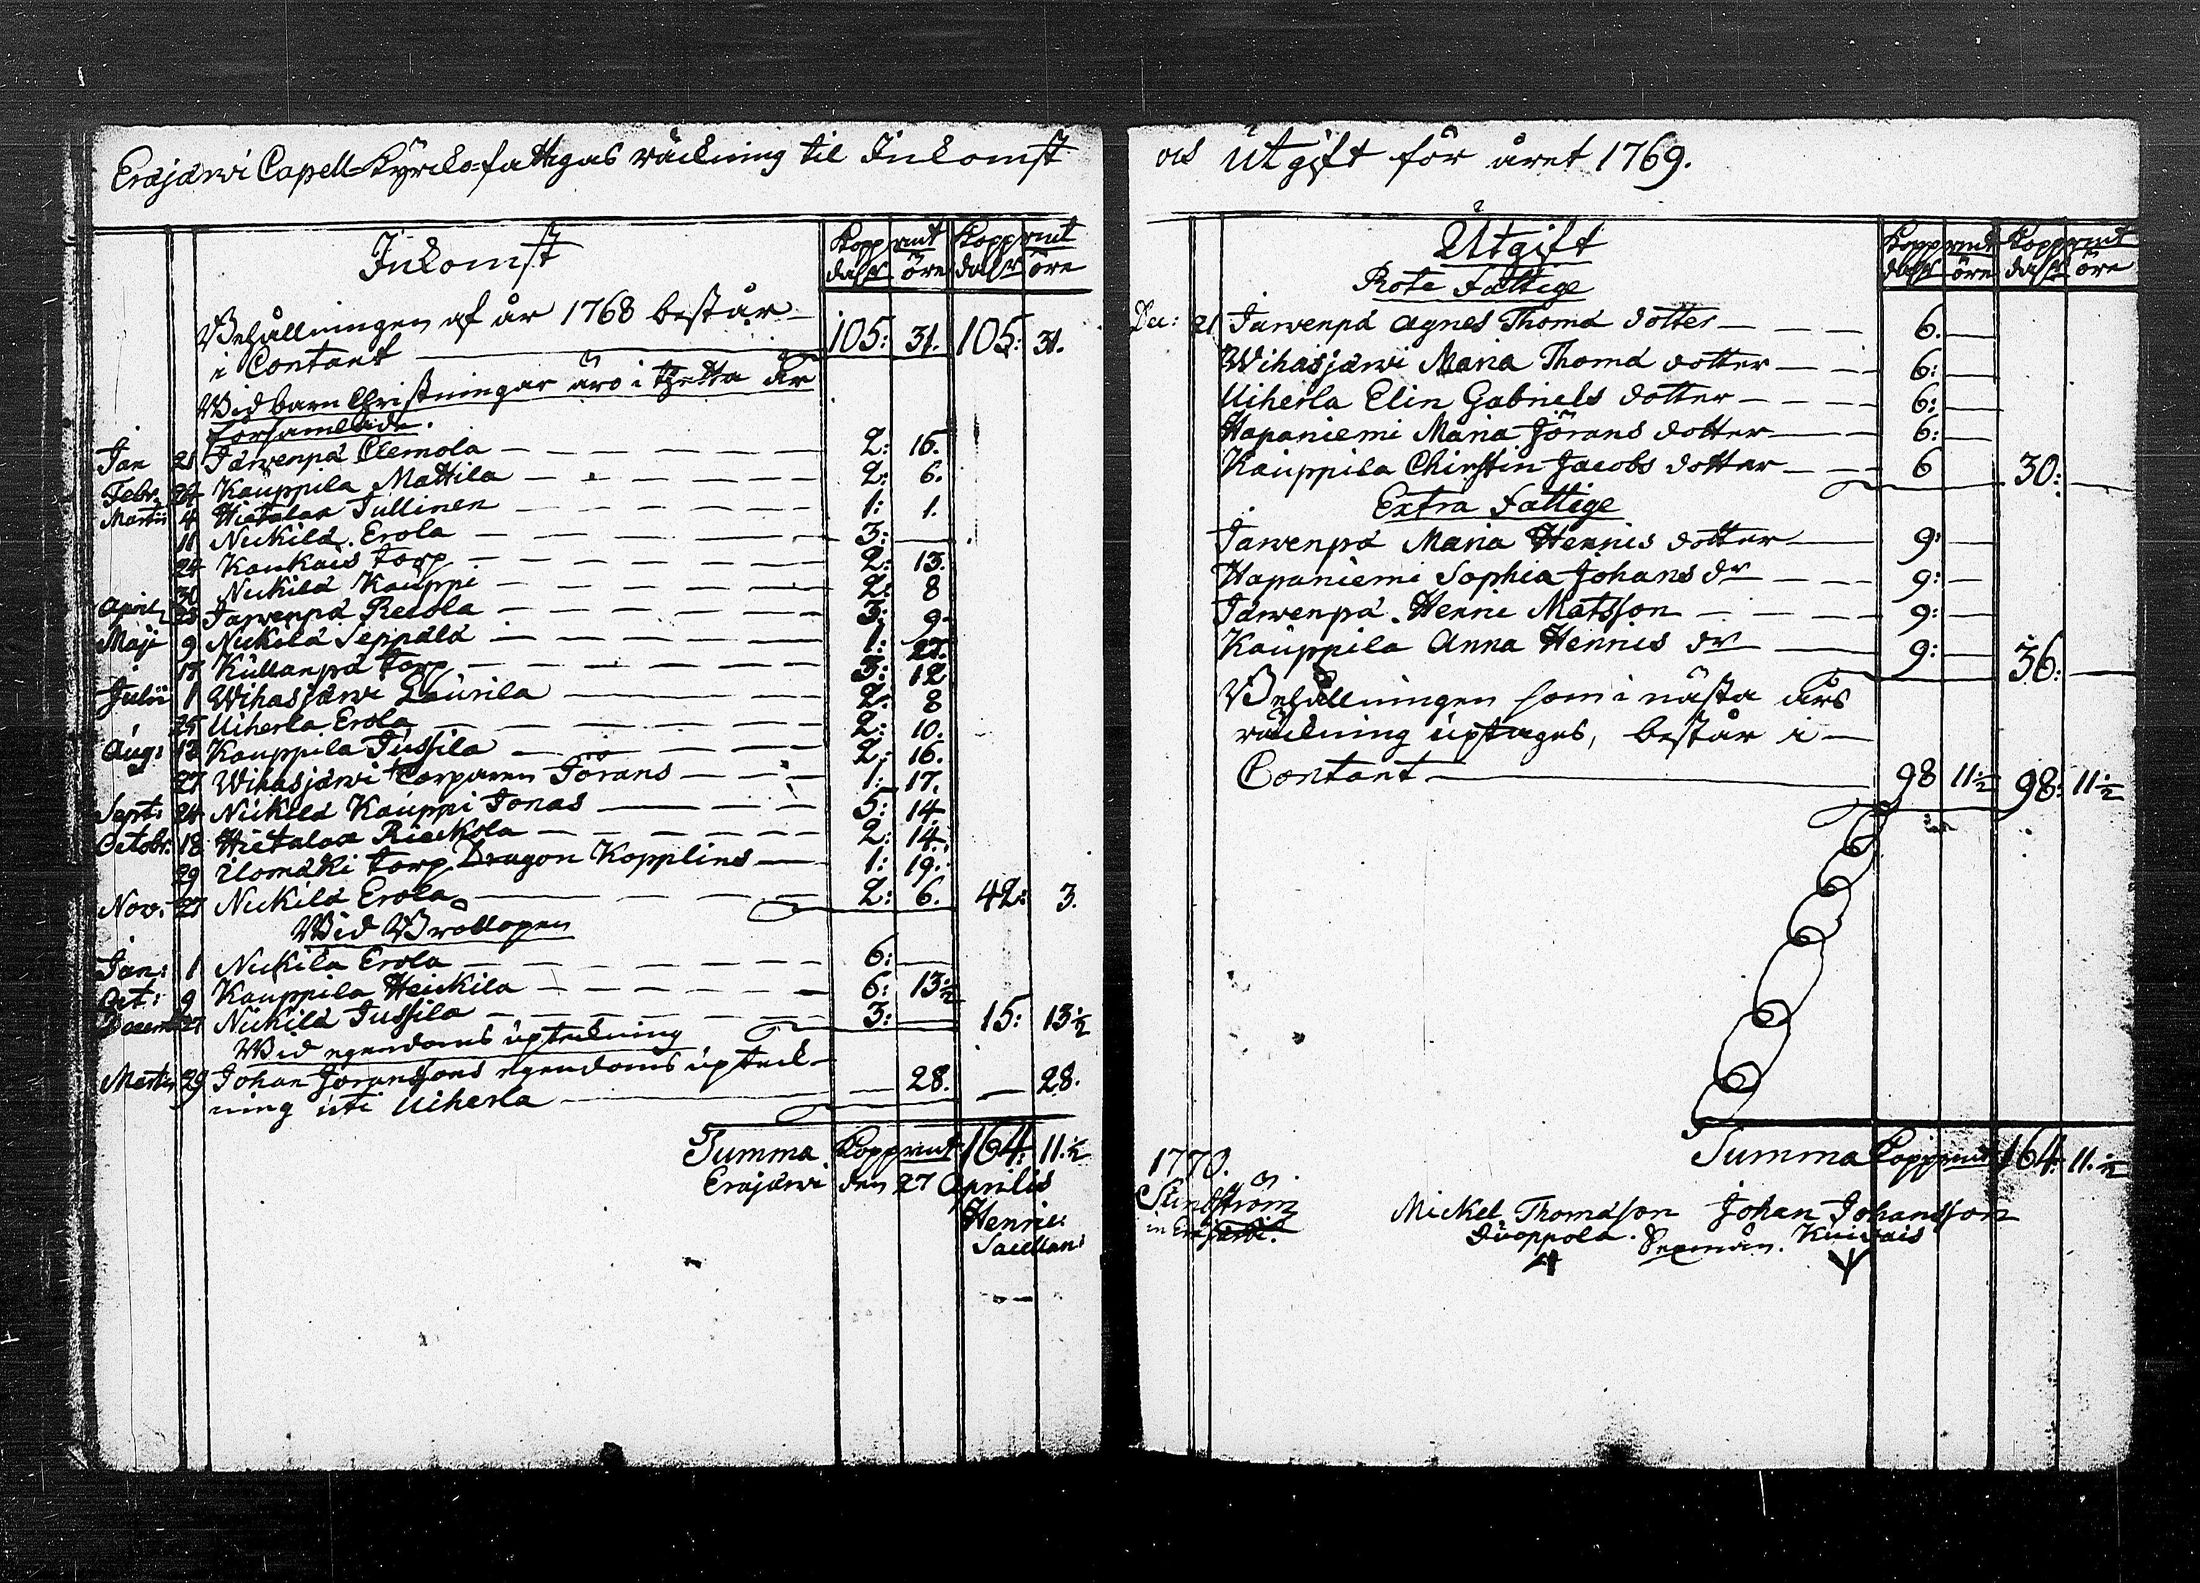 Eräjärwi Capell-Kyrcko-fattigas räckning til Inkomst
Inkomst
Kopp mt Kopp mt
dalr öre dalr öre
Behållningen af år 1768 består
i Contant 105: 31. 105: 31.
Wid barn Christningar äro i thetta år
församlade.
Jan 21 Järwenpä Clemola 2: 16.
Febr. 24 Kauppila Mattila 2: 6.
Martii 4 Hietalax Tullinen 1: 1.
11 Nickilä Erola 3:
24 Kaukais torp 2: 13.
30 Nickilä Kauppi 2: 8
April 23 Järwenpä Recola 3: 9
Maji 9 Nickilä Seppälä 1: 22.
17 Kullanpä torp 3: 12
Julii 1 Wihasjärwi Laurila 2: 8
25 Uiherla Erola 2: 10.
Aug: 13 Kauppila Jussila 2: 16.
27 Wihasjärwi torparen Jörans 1: 17.
Sept: 24 Nickilä Kauppi Jonas 5: 14.
Octobr: 18 Hietalax Rieckola 2: 14.
29 Ilomäki torp Dragon Kopplins 1: 19.
Nov: 27 Nickilä Erola 2: 6. 42: 3.
Wid Bröllopen
Jan: 1 Nickilä Erola 6:
Oct: 9 Kauppila Heickila 6: 13½
Decemb 27 Nickilä Jussila 3: 15: 13½
Wid egendoms upteckning
Martii 29 Johan Joranssons egendoms upteck-
ning uti Uiherla 28. 28.
Summa Koppmt 164: 11½
Eräjärwi den 27 Aprilis
Henric
Sacellan:
och Utgift för året 1769.
Utgift
Kopp mt Kopp mt
dalr öre dalr öre
Rote Fattige
Dec: 21 Järwenpä Agnes Thomä dotter 6.
Wihasjärwi Maria Thomä dotter 6:
Uiherla Elin Gabriels dotter 6:
Hapaniemi Maria Jörans dotter 6:
Kauppila Chirstin Jacobs dotter 6 30:
Extra Fattige
Järwenpä Maria Henrics dotter 9:
Hapaniemi Sophia Johans dr 9:
Järwenpä Henric Matsson 9:
Kauppila Anna Henrics dr 9: 36:
Behållningen som i nästa års
räckning uptages, består i
Contant 98 11½ 98: 11½
Summa Koppmt 164: 11½
1770.
in Eräjärwi.
Mickel Thomasson Johan Johansson
Sexmän.